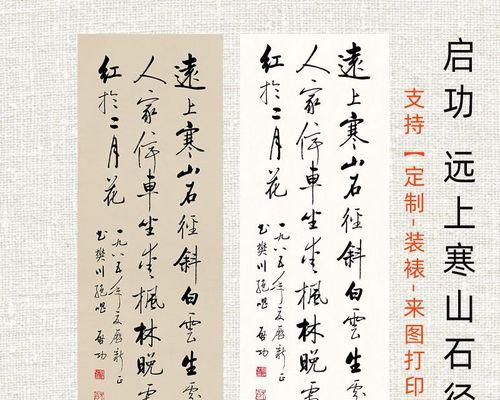 启功 远上寒山石径
支持【定制-装裱-来图打印
遠上寒山石徑斜白雲生處
人家停車坐愛楓林晚霜
紅於二月花
一九八五年夏曆新正
書樊川絕唱 啟功
遠上寒山石徑斜白雲生處
人家停車坐愛楓林晚霜
紅於二月花
一九八五年夏曆新正
書樊川絕唱 啟功